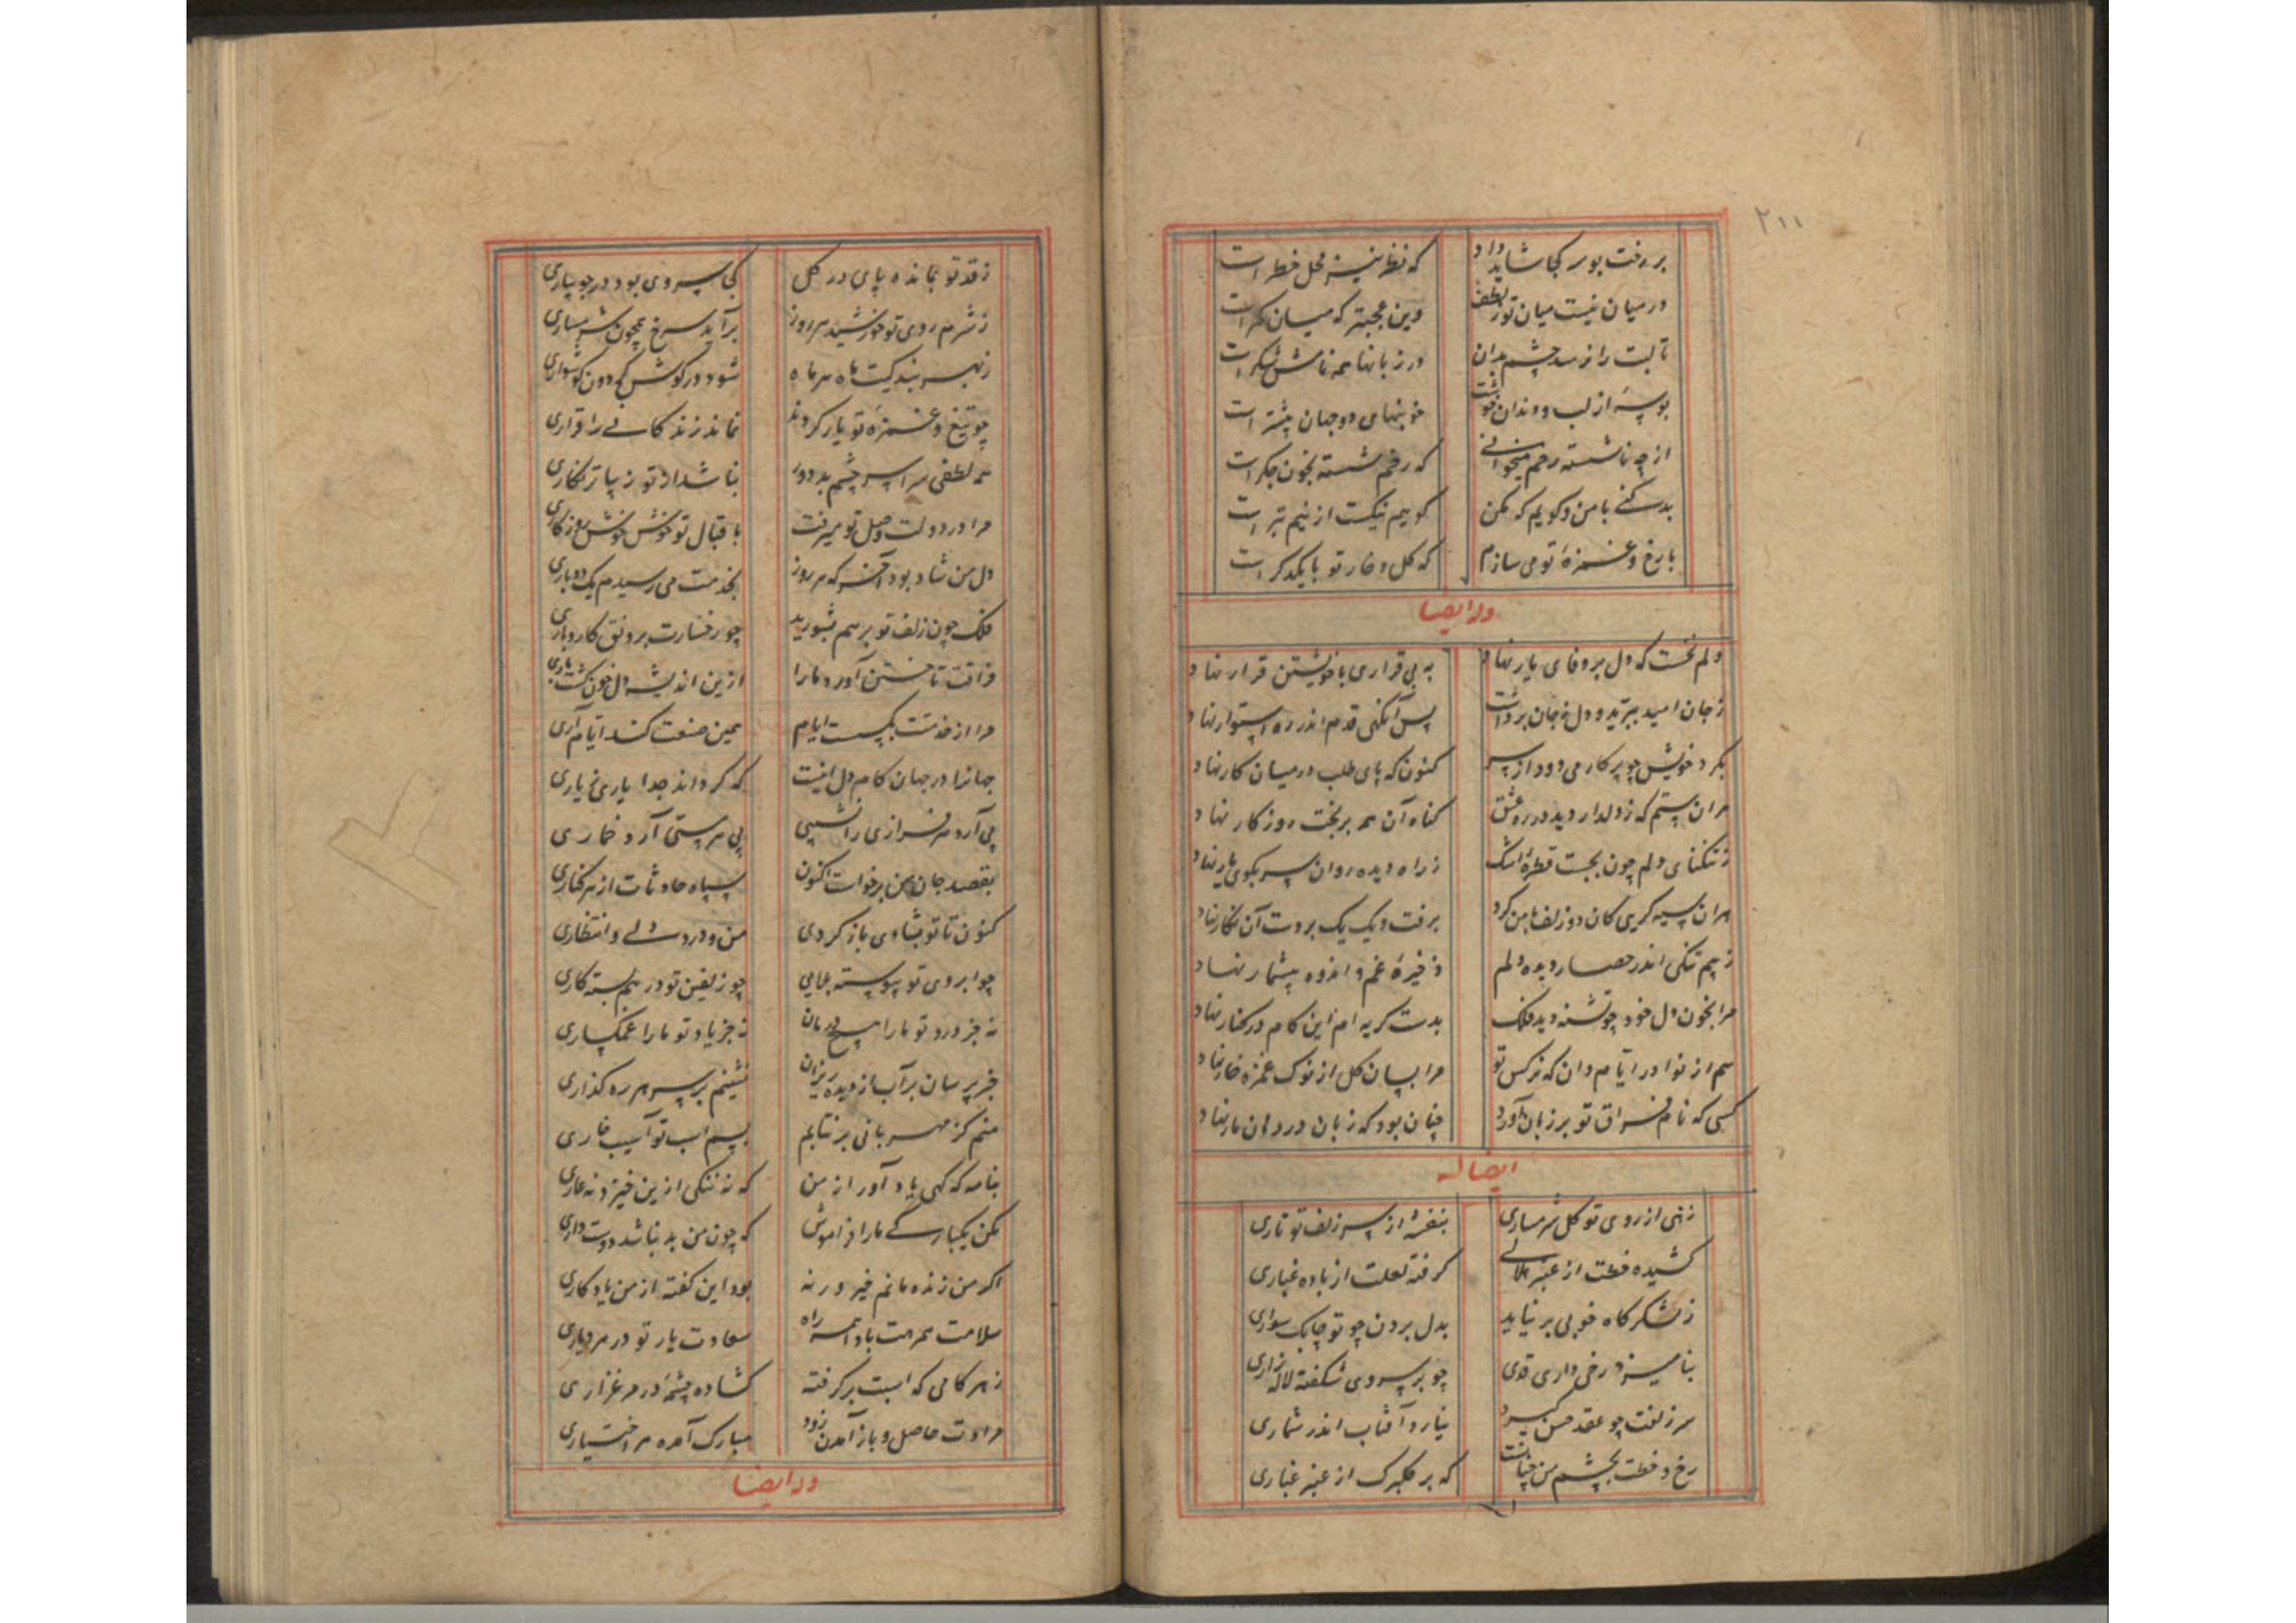 ۲۰۰
بر رخت بوسه کجا شاید داد که نظر نیز محل خطر است
در میان نیست میان تو ز لطف وین عجبتر که میان کمر است
تا لبت را نرسد چشم بدان در زبانها همه نامش شکر است
بوسهٔ از لب و دندان خوشت خونبهای دو جهان بیشتر است
از چه ناشسته رخم میخوانی که رخم شسته بخون جکر است
بد کنی با من و کویم که مکن کوییم نیکست ازینم بتر است
با رخ و غمزهٔ تو می سازم که کل و خار تو با یکدکر است
وله ایضا
دلم نخست که دل بر وفای یار نهاد به بی قراری با خویشتن قرار نهاد
ز جان امید ببرید و دل ز جان برداشت پس آنکهی قدم اندر ره استوار نهاد
بکرد خویش چو پرکار می دود از سر کنون که پای طلب در میان کار نهاد
هر ان ستم که ز دلدار دید در ره عشق کناه آن همه بر بخت روزکار نهاد
ز تنکنای دلم چون بجست قطرهٔ اشک ز راه دیده روان سر بکوی یار نهاد
هر ان سیه کریی کان دو زلف با من کرد برفت و یک یک بر دست آن نکار نهاد
ز بیم تنکی اندر حصار دیده دلم ذخیرهٔ غم و اندوه بیشمار نهاد
مرا بخون دل خود چو تشنه دید فلک بدست کریه ام این کام در کنار نهاد
هم از نوادر ایام دان که نرکس تو مرا بسان کل از نوک غمزه خار نهاد
کسی که نام فراق تو بر زبان آورد چنان بود که زبان در دهان مار نهاد
ایضا له
زهی از روی تو کل شرمساری بنفشه از سر زلف تو تاری
کشیده خطت از عنبر هلالی کرفته لعلت از باده غباری
ز لشکرکاه خوبی بر نیاید بدل بردن چو تو چابک سواری
بنامیزد رخی داری و قدی چو بر سروی شکفته لاله زاری
سر زلفت چو عقد حسن کیرد نیارد آفتاب اندر شماری
رخ و خطت بچشم من چنانست که بر کلبرک از عنبر غباری
ز قد تو بمانده پای در کل کجا سروی بود در جویباری
ز شرم روی تو خورشید هر روز برآید سرخ همچون شرمساری
ز بهر بندکیت ماه هر ماه شود در کوش کردون کوشواری
چو تیغ و غمزهٔ تو یار کردند نماند زندکانی را قراری
همه لطفی سراسر چشم بد دور نباشد از تو زیباتر نکاری
مرا در دولت وصل تو میرفت باقبال تو خوش خوش روزکاری
دل من شاد بود آخر که هر روز بخدمت می رسیدم یک دو باری
فلک چون زلف تو بر هم بشورید چو رخسارت برونق کار و باری
فراقت تاختن آورد ما را ازین اندیشه دل خون کشت باری
مرا از خدمتت بکسست ایام همین صنعت کند ایام آری
جهانرا در جهان کام دل اینست که کرداند جدا یاری ز یاری
پی آرد هر فرازی را نشیبی پی هر مستی آرد خماری
بقصد جان من برخواست اکنون سپاه حادثات از هر کناری
کنون تا تو بشادی باز کردی من و درد دلی و انتظاری
چو ابروی تو پیوسته بلایی چو زلفین تو در هم بسته کاری
نه جز درد تو ما را هیچ درمان نه جز یاد تو ما را غمکساری
خبر پرسان بر آب از دیده ریزان نشینم بر سر هر ره کذاری
منم کز مهربانی بر نتابم بسم اسب تو آسیب خاری
بنامه که کهی یاد آور از من که نه ننکی ازین خیزد نه عاری
مکن یکبارکی ما را فراموش که چون من بد نباشد دوستداری
اکر من زنده مانم خیر ورنه بود این کفته از من یادکاری
سلامت همرهت بادا همه راه سعادت یار تو در هر دیاری
ز هر کامی که اسبت برکرفته کشاده چشمهٔ در مرغزاری
مرادت حاصل و باز آمدن زود مبارک آمده هر اختیاری
وله ایضا